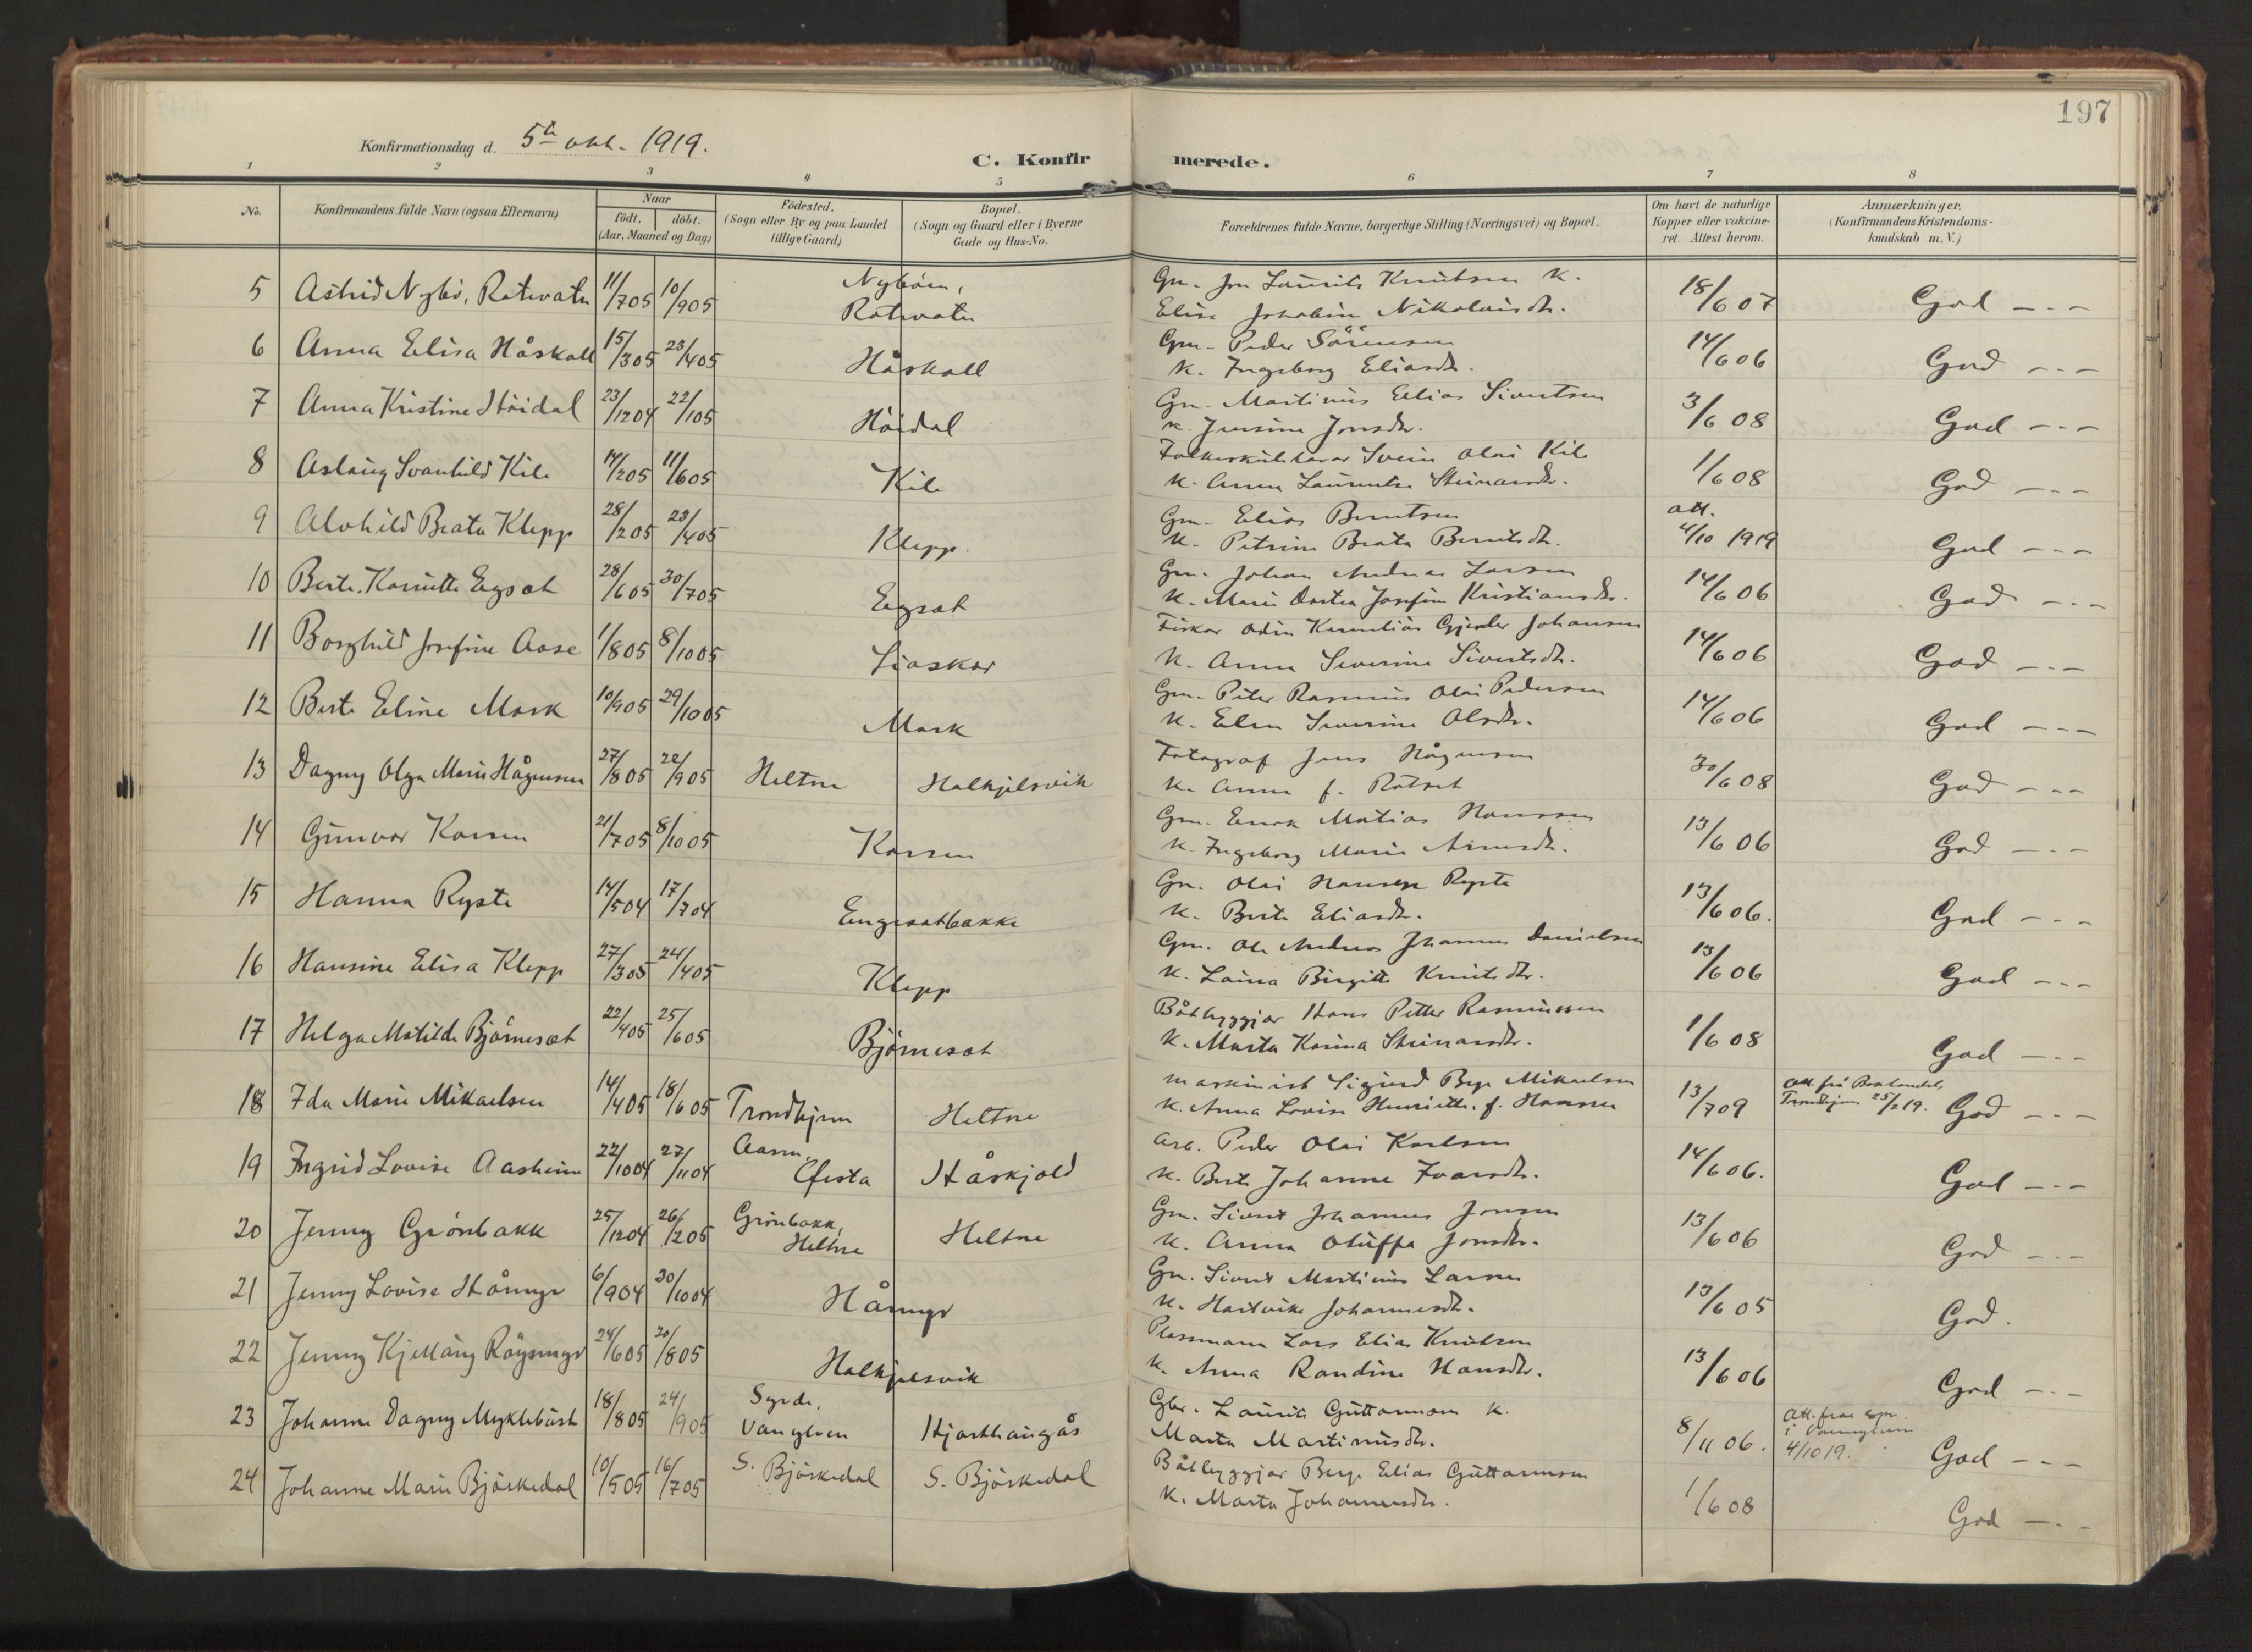 197
Konfirmationsdag d. 5te okt. 1919.
C. Konfirmerede.
1 2 3 4 5 6 7 8
No.
Konfirmandens fulde Navn (ogsaa Efternavn)
Naar
født. døbt.
(Aar, Maaned og Dag)
Fødested.
(Sogn eller By og paa Landet
tillige Gaard)
Bopæl.
(Sogn og Gaard eller i Byerne
Gade og Hus-No.
Forældrenes fulde Navne, borgerlige Stilling (Næringsvei) og Bopæl.
Om havt de naturlige
Kopper eller vakcine-
ret. Attest herom.
Anmærkninger.
(Konfirmandens Kristendoms-
kundskab m. V.)
5 Astrid Nybö, Rotevatn 11/7 05 10/9 05 Nyböen, Rotevatn Gm. Jon Laurits Knutsen K.
Elise Jakobine Nikolaisdtr. 18/6 07 God - - -
6 Anna Elisa Håskoll 15/3 05 23/4 05 Håskoll Gm. Peder Sörensen
K. Ingeborg Eliasdr. 14/6 06 God - - -
7 Anna Kristine Höidal 23/12 04 22/1 05 Höidal Gm. Martinus Elias Sivertsen
K. Jensine Jonsdr. 3/6 08 God - - -
8 Aslaug Svanhild Kile 14/2 05 11/6 05 Kile Svein Olai Kile
K. Anna Laurentse Steinarsdr. 1/6 08 God - - -
9 Alvhild Beata Klepp 28/2 05 23/4 05 Klepp Gm. Elias Berntsen
K. Petrine Beata Berntsdtr. att.
4/10 1919 God - - -
10 Berte Kornette Eegsæt 28/6 05 30/7 05 Egsæt Gm. Johan Andreas Larsen
K. Marie Dortea Josefine Kristiansdr. 14/6 06 God - - -
11 Borghild Josefine Aase 1/8 05 8/10 05 Liaskar Fiskar Odin Kornelius Gjerder Johansen
K. Anna Severine Sivertsdtr. 14/6 06 God - - -
12 Berte Eline Mork 10/9 05 29/10 05 Mork Gm. Peter Rasmus Olai Pedersen
K. Elen Severine Olsdr. 14/6 06 God - - -
13 Dagny Olga Marie Hågensen 27/8 05 22/9 05 Heltne Halkjelsvik Fotograf Jens Hågensen
K. Anna f. Rötset 30/6 08 God - - -
14 Gunvor Korsen 21/7 05 8/10 05 Korsen Gm. Enok Matias Hanssen
K. Ingeborg Marie 13/6 06 God - - -
15 Hanna Ryste 14/5 04 17/7 04 Engesætbakke Gm. Olai Hansen Ryste
K. Berte Eliasdr. 13/6 06. God - - -
16 Hansine Elisa Klepp 27/3 05 24/4 05 Klepp Gm. Ole Andreas Johannes Danielsen
K. Laura Birgitte Knutsdtr. 13/6 06 God - - -
17 Helga Matilde Björnesæt 22/4 05 25/6 05 Björnesæt Båtbyggjar Hans Petter Rasmussen
K. Marta Karina Steinarsdtr. 1/6 08 God - - -
18 Ida Marie Mikaelsen 14/4 05 18/6 05 Trondhjem Heltne Maskinist Sigurd Bye Mikaelsen
K. Anna Lovise Henriette f. Hanssen 13/7 09 Att. frå Baklandet,
Trondhjem 25/2 19. God - - -
19 Ingrid Lovise Aasheim 22/10 04 27/11 04 Aasen, Ørsta Håskjold Arb. Peder Olai Karlsen
K. Berte Johanne Ivarsdtr. 14/6 06. God - - -
20 Jenny Grönbakk 25/12 04 26/2 05 Grönbakk, Heltne Heltne Gm. Sivert Johannes Jonsen
K. Anna Oluffa Jonsdtr. 13/6 06 God - - -
21 Jenny Lovise Håmyr 6/9 04 30/10 04 Håmyr Gm. Sivert Martinus Larsen
K. Hartvike Johannesdtr. 13/6 05 God.
22 Jenny Kjellaug Röysmyr 24/6 05 20/8 05 Halkjelsvik Plassmann Lars Elias Knutsen
K. Anna Randine Hansdtr. 13/6 06 God - - -
23 Johanne Dagny Myklebust 18/8 05 24/9 05 Syvde, Vanylven Hjorthaugås Gbr. Laurits Guttormsen K.
Marta Martinusdtr. 8/11 06. Att. fraa spr.
i Vannylven
4/10 19. God - - -
24 Johanne Marie Björkedal 10/5 05 16/7 05 S. Björkedal S. Björkedal Båtbyggjar Berje Elias Guttormsen
K. Marta Johannesdtr. 1/6 08 God - - -